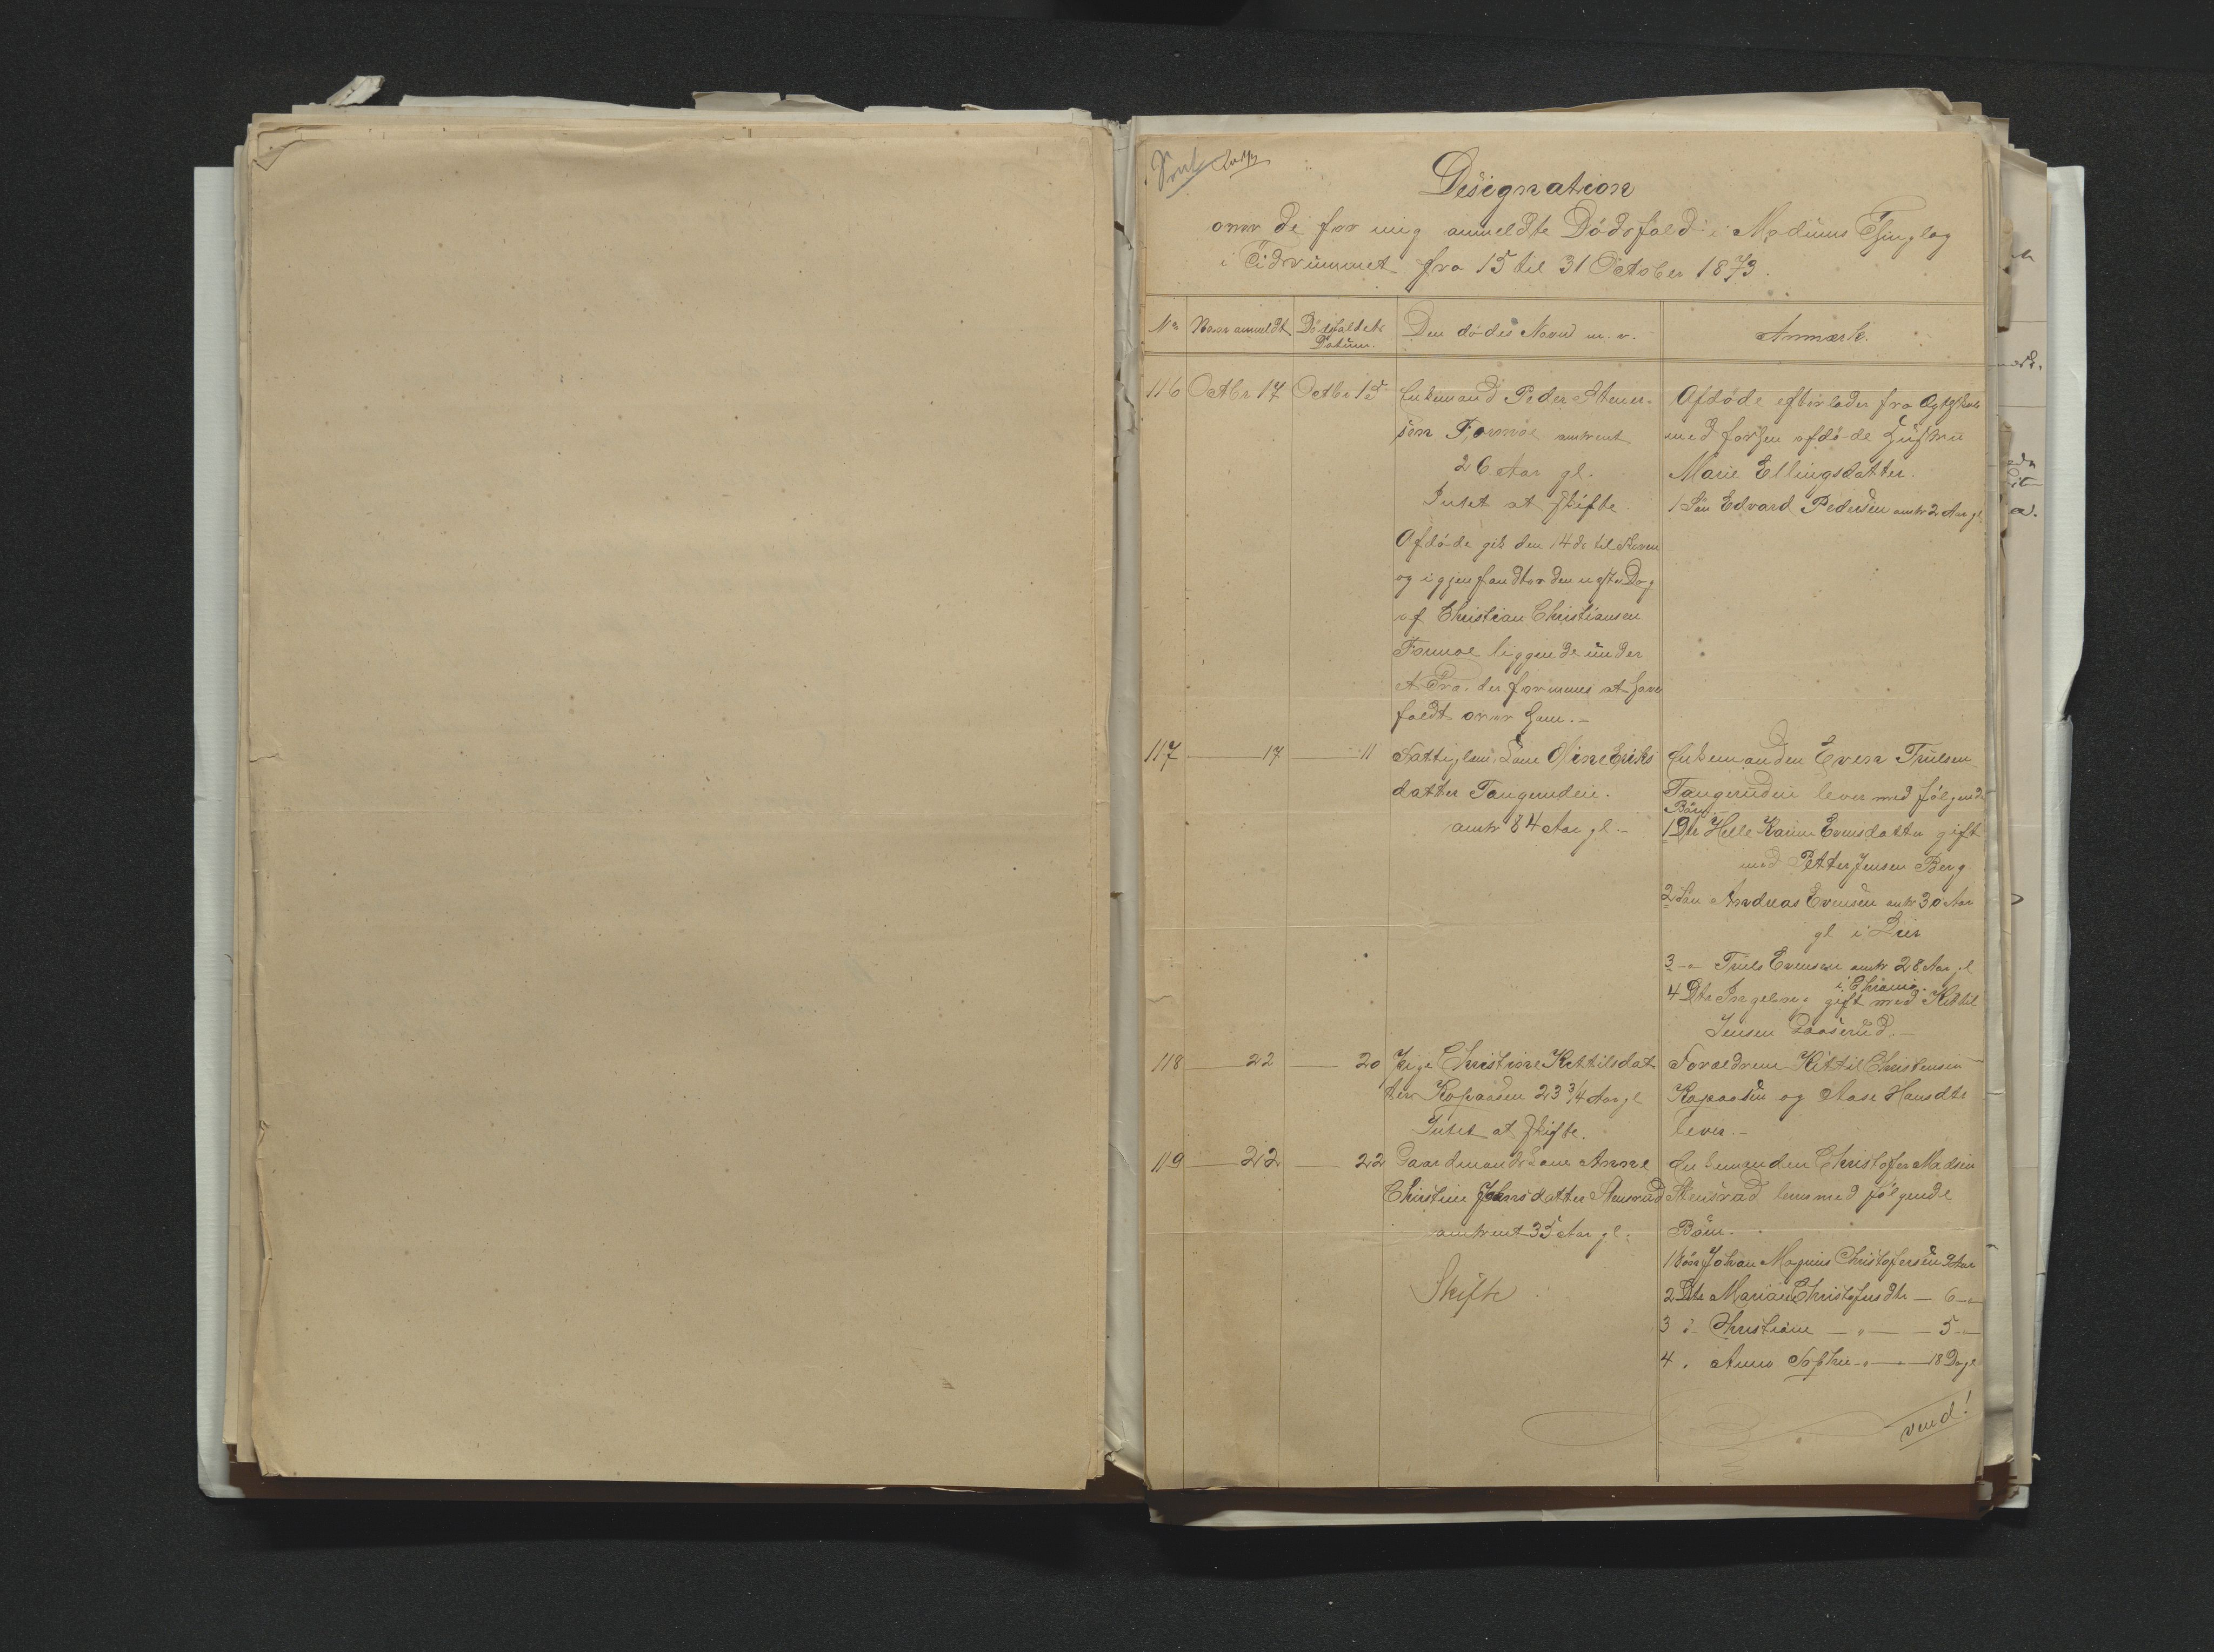 Designation
over de for mig anmeldte Dødsfald i Modums Thinglag
i Tidrummet fra 15 til 31 October 1873.
No Naar anmeldt Dødsfaldets Datum. Den dødes Navn m. v. Anmærk.
116 Octbr 17 Octbr 15 Enkemand Peder Stener-
sen Formoe omtrent
26 Aar gl.
Intet at skifte.
Afdøde gik den 14de til Skoven
og igjenfandtes den næste Dag
af Christian Christiansen
Formoe liggende under
et Træ der formenes at have
faldt over ham.-
Afdøde efterlader fra Ægteskab
med forhen afdøde Hustru
Marie Ellingsdatter.
1 Søn Edvard Pedersen omtr 2 Aar gl.
117 — 17 — 11 Fattiglem, Kone Oline Eriks
datter Tangerudeie.
omtr 84 Aar gl.-
Enkemanden Even Trulsen
Tangerudeie lever med følgende
Børn.
1 Dtr Helle Karine Evensdatter gift
med Petter Jensen Berg
2 Søn Andreas Evensen omtr 30 Aar
gl i Lier
3 -„- Truls Evensen omtr 28 Aar gl
i Chrania.
4 Dtr Ingeborg gift med Kittil
Jensen Aaserud.-
118 — 22 — 20 Pige Christine Kittilsdat
ter Kopaasen 23 3/4 Aar gl
Intet at skifte.
Forældrene Kittil Christensen
Kopaasen og Aase Hansdtr
lever.-
119 — 22 — 22 Gaardmandskone Anne
Christine Johnsdatter Stensrud
omtrent 35 Aar gl.
Skifte
Enkemanden Christofer Madsen
Stensrud lever med følgende
Børn.
1 Søn Johan Magnus Christofersen 9 Aar
2 Dtr Mariane Christofersdtr — 6 -„-
3 d- Christiane — „ — — 5 -„-
4 „ Anna Sophie -„- — 18 Dage
vend!